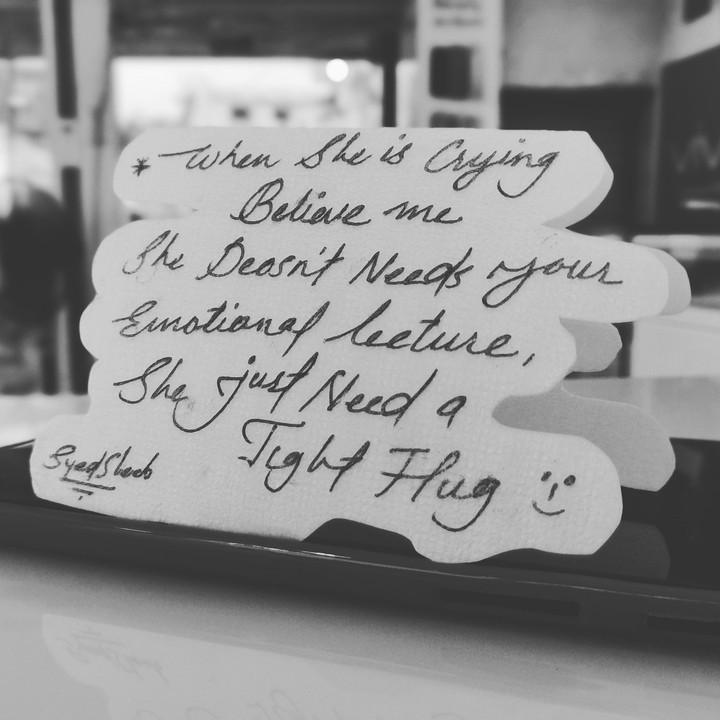 * When She is Crying
Believe me
She Deosn't Needs your
Emotional lecture,
She just Need a
Tight Hug
SyedShoeb